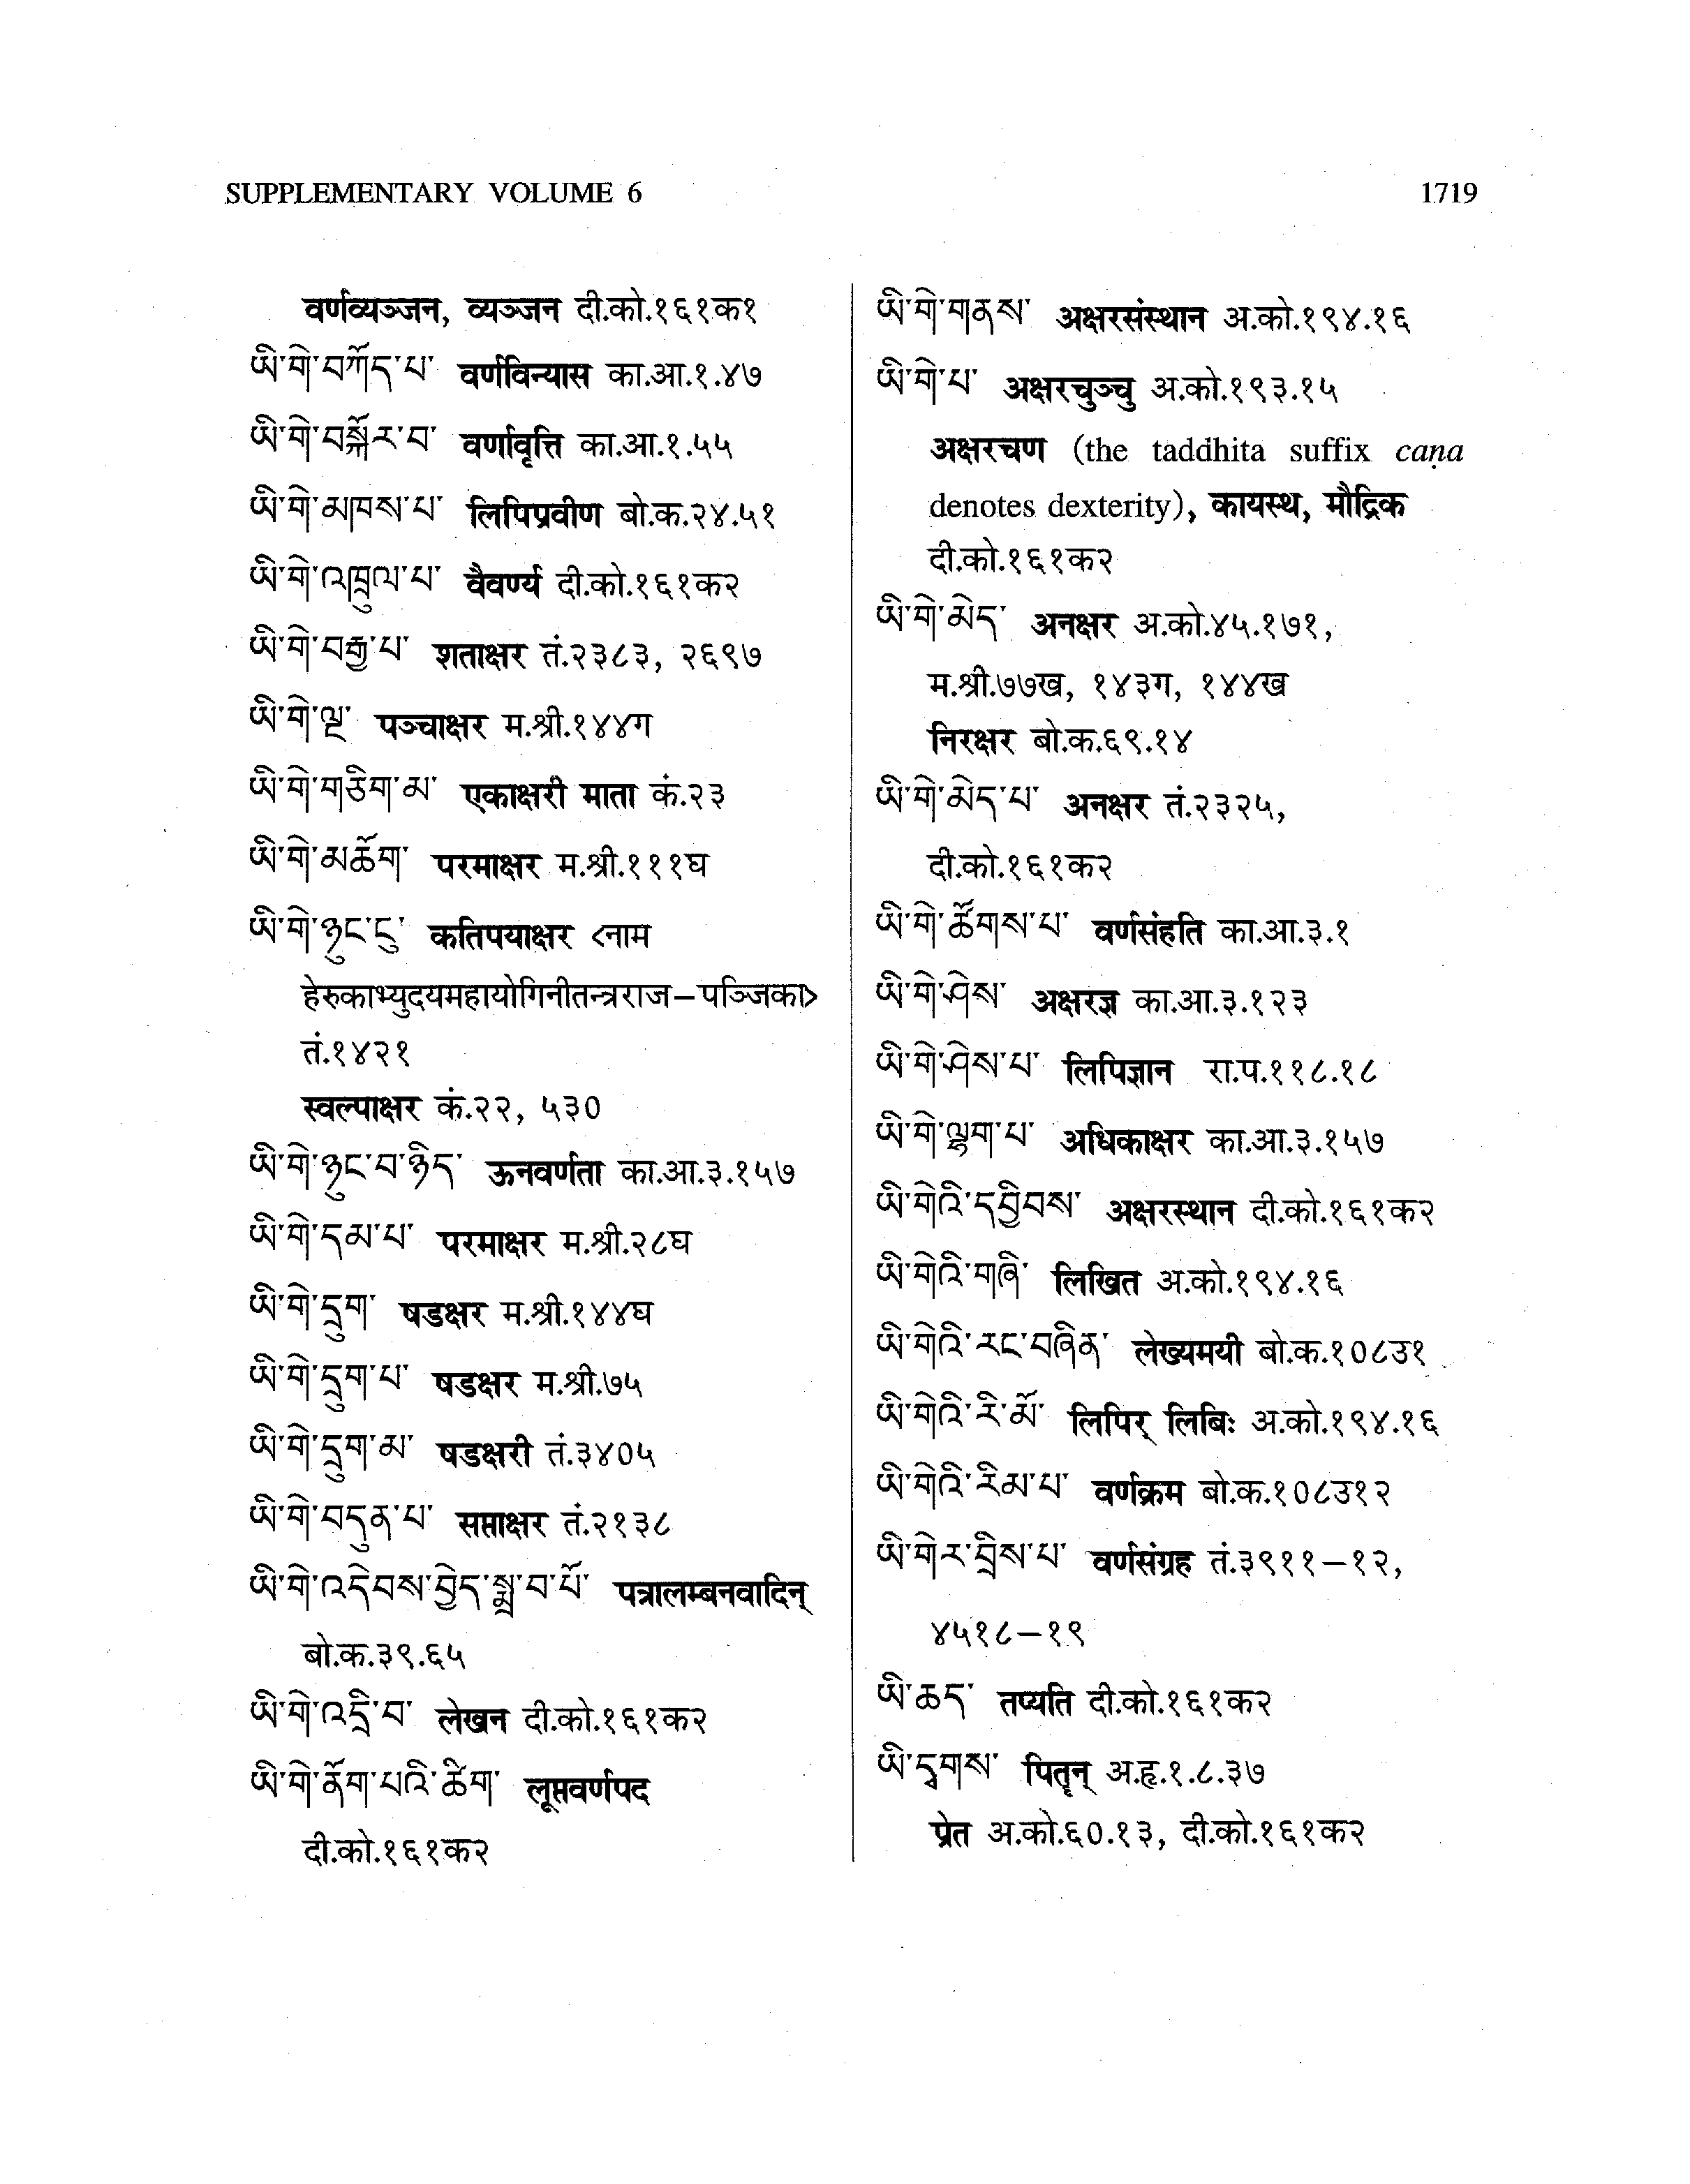 SUPPLEMENTARY VOLUME 6
1719
वर्णव्यञ्जन, व्यञ्जन दी.को.१६१क१
ཡི་གེ་བཀོད་པ་ वर्णविन्यास का.आ.१.४७
ཡི་གེ་བསྐོར་བ་ वर्णावृत्ति का.आ.१.५५
ཡི་གེ་མཁས་པ་ लिपिप्रवीण बो.क.२४.५१
ཡི་གེ་འཁྲུལ་པ་ वैवर्ण्य दी.को.१६१क२
ཡི་གེ་བརྒྱ་པ་ शताक्षर तं.२३८३, २६९७
ཡི་གེ་ལྔ་ पञ्चाक्षर म.श्री.१४४ग
ཡི་གེ་གཅིག་མ་ एकाक्षरी माता कं.२३
ཡི་གེ་མཆོག་ परमाक्षर म.श्री.१११घ
ཡི་གེ་ཉུང་ངུ་ कतिपयाक्षर <नाम
हेरुकाभ्युदयमहायोगिनीतन्त्रराज–पञ्जिका>
तं.१४२१
स्वल्पाक्षर कं.२२, ५३०
ཡི་གེ་ཉུང་བ་ཉིད་ ऊनवर्णता का.आ.३.१५७
ཡི་གེ་དམ་པ་ परमाक्षर म.श्री.२८घ
ཡི་གེ་དྲུག་ षडक्षर म.श्री.१४४घ
ཡི་གེ་དྲུག་པ་ षडक्षर म.श्री.७५
ཡི་གེ་དྲུག་མ་ षडक्षरी तं.३४०५
ཡི་གེ་བདུན་པ་ सप्ताक्षर तं.२१३८
ཡི་གེ་འདེབས་བྱེད་སྨྲ་བ་པོ་ पत्रालम्बनवादिन्
बो.क.३९.६५
ཡི་གེ་འདྲི་བ་ लेखन दी.को.१६१क२
ཡི་གེ་ནོག་པའི་ཚིག་ लूप्तवर्णपद
दी.को.१६१क२
ཡི་གེ་གནས་ अक्षरसंस्थान अ.को.१९४.१६
ཡི་གེ་པ་ अक्षरचुञ्चु अ.को.१९३.१५
अक्षरचण (the taddhita suffix caṇa
denotes dexterity), कायस्थ, मौद्रिक
दी.को.१६१क२
ཡི་གེ་མེད་ अनक्षर अ.को.४५.१७१,
म.श्री.७७ख, १४३ग, १४४ख
निरक्षर बो.क.६९.१४
ཡི་གེ་མེད་པ་ अनक्षर तं.२३२५,
दी.को.१६१क२
ཡི་གེ་ཚོགས་པ་ वर्णसंहति का.आ.३.१
ཡི་གེ་ཤེས་ अक्षरज्ञ का.आ.३.१२३
ཡི་གེ་ཤེས་པ་ लिपिज्ञान रा.प.११८.१८
ཡི་གེ་ལྷག་པ་ अधिकाक्षर का.आ.३.१५७
ཡི་གེའི་དབྱིབས་ अक्षरस्थान दी.को.१६१क२
ཡི་གེའི་གཞི་ लिखित अ.को.१९४.१६
ཡི་གེའི་རང་བཞིན་ लेख्यमयी बो.क.१०८उ१
ཡི་གེའི་རི་མོ་ लिपिर् लिबिः अ.को.१९४.१६
ཡི་གེའི་རིམ་པ་ वर्णक्रम बो.क.१०८उ१२
ཡི་གེར་བྲིས་པ་ वर्णसंग्रह तं.३९११–१२,
४५१८–१९
ཡི་ཆད་ तप्यति दी.को.१६१क२
ཡི་དྭགས་ पितॄन् अ.हृ.१.८.३७
प्रेत अ.को.६०.१३, दी.को.१६१क२